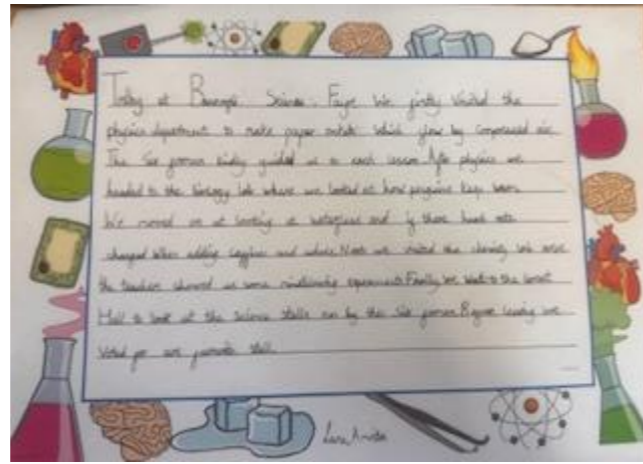 Today at Science Fayre We firstly visited the
physics department to make paper which by compressed air.
The Six formers kindly guided us to each lesson. After physics we
headed to the biology lab where we looked at how penguins keep warm.
We moved on at looking at and if there heart rate
changed when adding and Next we visited the
the teachers showed us some experiments. Finally We Went to the
Hall to look at the science stalls run by the Six formers. Before leaving we
Voted for our favourite stall.
Lara